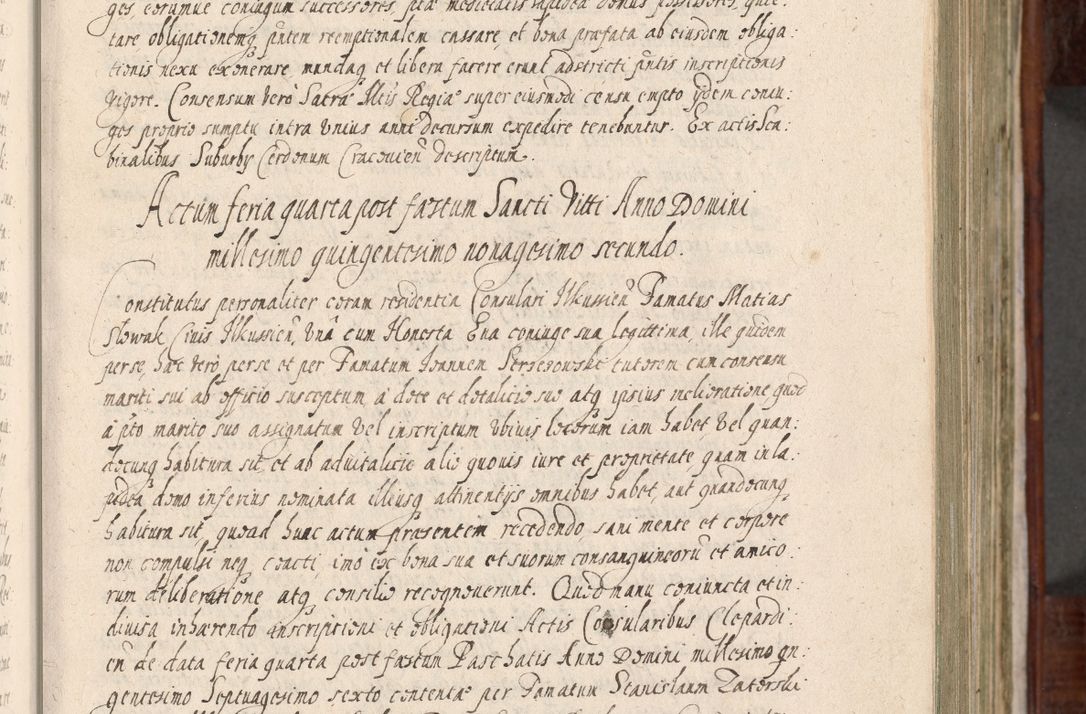 ges, eorumue coniugum successores, ptae medietatis lapideae domus possessores, quie:
tare obligationemq pntem reemptionalem cassare, et bona praefata ab eiusdem obliga:
tionis nexu exonerare, mundaq et libera facere erunt adstricti pntis inscriptionis
vigore. Consensum verò Sacrae Mtis Regiae super eiusmodi censu empto ijdem coniu:
ges proprio sumptu intra vnius anni decursum expedire tenebuntur. Ex actis Sca:
binalibus Suburbÿ Cerdonum Cracouien descriptum.
Actum feria quarta post fæstum Sancti Vitti Anno Domini
millesimo quingentesimo nonagesimo secundo.
Constitutus personaliter coram residentia Consulari Ilkussien Famatus Matias
Slowak Ciuis Ilkussien, vnà cum Honesta Eua coniuge sua legittima, ille quidem
per se, haec verò per se et per Famatum Ioannem tutorem cum consensu
mariti sui ab officio susceptum à dote et dotalitio suo atq ipsius melioratione, quod
à pto marito suo assignatum vel inscriptum vbiuis locorum iam habet vel quan:
docunq habitura sit, et ab aduitalicio alio quouis iure et proprietate quam in la:
pidea domo inferius nominata illiusq attinentijs omnibus habet, aut quandocunq
habitura sit, quoad hunc actum praesentem recedendo, sani mente et corpore
non compulsi neq coacti, imò ex bona sua et suorum consanguineorũ et amico:
rum deliberatione atq consilio recognouerunt. Quod manu coniuncta et in:
diuisa inhærendo inscriptioni et obligationi Actis Consularibus Cleparди:
en de data feria quarta post fæstum Paschatis Anno Domini millesimo qn:
gentesimo Septuagesimo sexto contentae per Famatum Stanislaum Zatorski